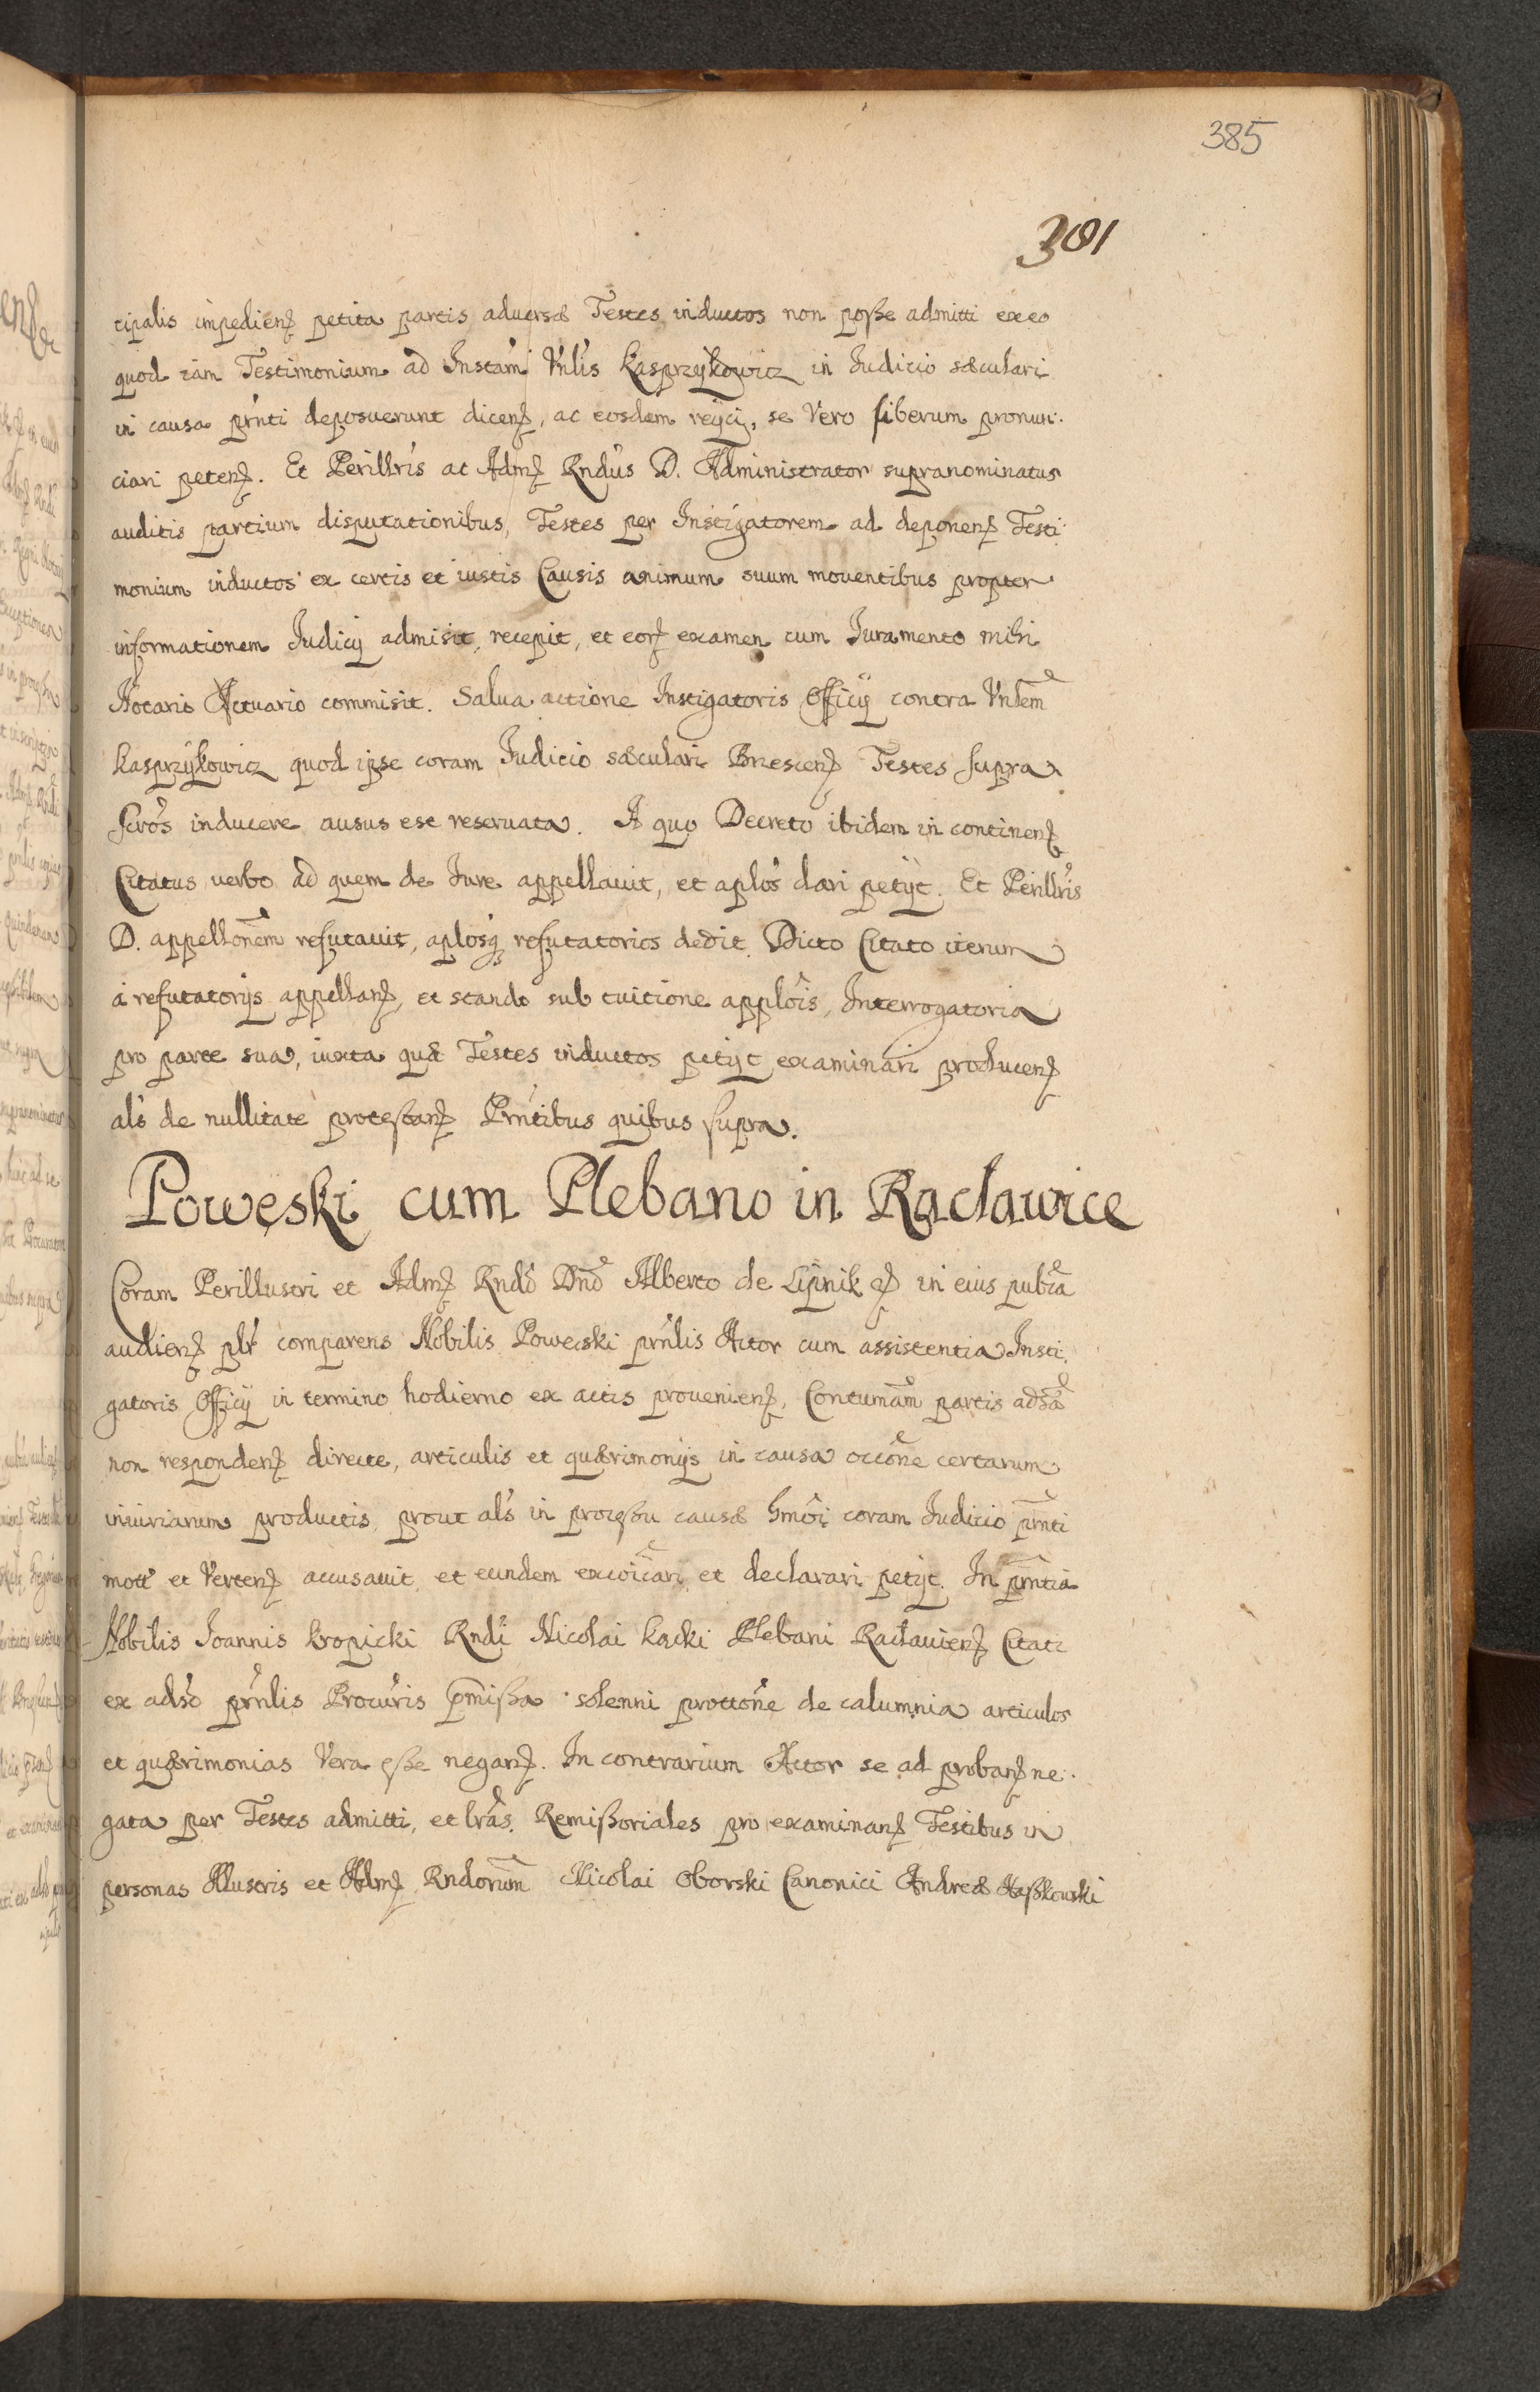 385
301
cipalis impedienẜ petita partis aduersæ Testes inductos non posse admitti ex eo
quod iam Testimonium ad Instam̃ Vnlis Kasprzykowicz in Iudicio sæculari
in causa prn̄ti deposuerunt dicenẜ, ac eosdem reijci, se Vero liberum pronun:
ciari petenẜ. Et Perillris ac Admẜ Rndus D. Administrator supranominatus
auditis partium disputationibus, Testes per Instigatorem ad deponenẜ Testi:
monium inductos ex certis et iustis Causis animum suum mouentibus propter
informationem Iudicij admisit, recepit, et eorẜ examen cum Iuramento mihi
Notario Actuario commisit. Salua actione Instigatoris Officij contra Vnlem̃
Kasprzykowicz quod ipse coram Iudicio sæculari Brzescenẜ Testes supra
scros inducere ausus est reseruata. A quo Decreto ibidem in continenẜ
Citatus verbo ad quem de Iure appellauit, et aplos dari petijt. Et Perillris
D. appellonem̃ refutauit, aplosq̨ refutatorios dedit. Dicto Citato iterum
a refutatorijs appellanẜ, et stando sub tuitione applois, Interrogatoria
pro parte sua, iuxta quæ Testes inductos petijt examinari producenẜ
als de nullitate protestanẜ Prntibus quibus supra.
Powęski cum Plebano in Racławice
Coram Perillustri et Admẜ Rndo Dno Alberto de Lipnik etẜ in eius publca
audienẜ plr comparens Nobilis Poweski prnlis Actor cum assistentia Insti:
gatoris Officij in termino hodierno ex actis prouenienẜ, Contumam̃ partis adsæ
non respondenẜ directe, articulis et quærimonijs in causa occone certarum
iniuriarum productis prout als in processu causæ hmoi coram Iudicio prnti
mott et Vertenẜ accusauit et eundem excoicari et declarari petijt. In prntia
Nobilis Ioannis Kropicki Rndi Nicolai Kacki Plebani Racławienẜ Citati
ex adso prnlis Procuris p̄missa solenni prottone de calumnia articulos
et quærimonias Vera esse neganẜ. In contrarium Actor se ad probanẜ ne:
gata per Testes admitti, et lras Remissoriales pro examinanẜ Testibus in
personas Illustris et Admẜ Rndorum̃ Nicolai Oborski Canonici Andreæ